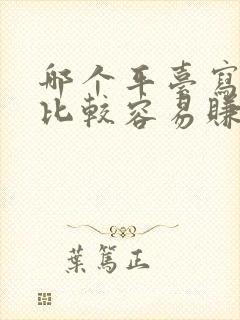 那个平臺寫
比较容易賺
葉篤正